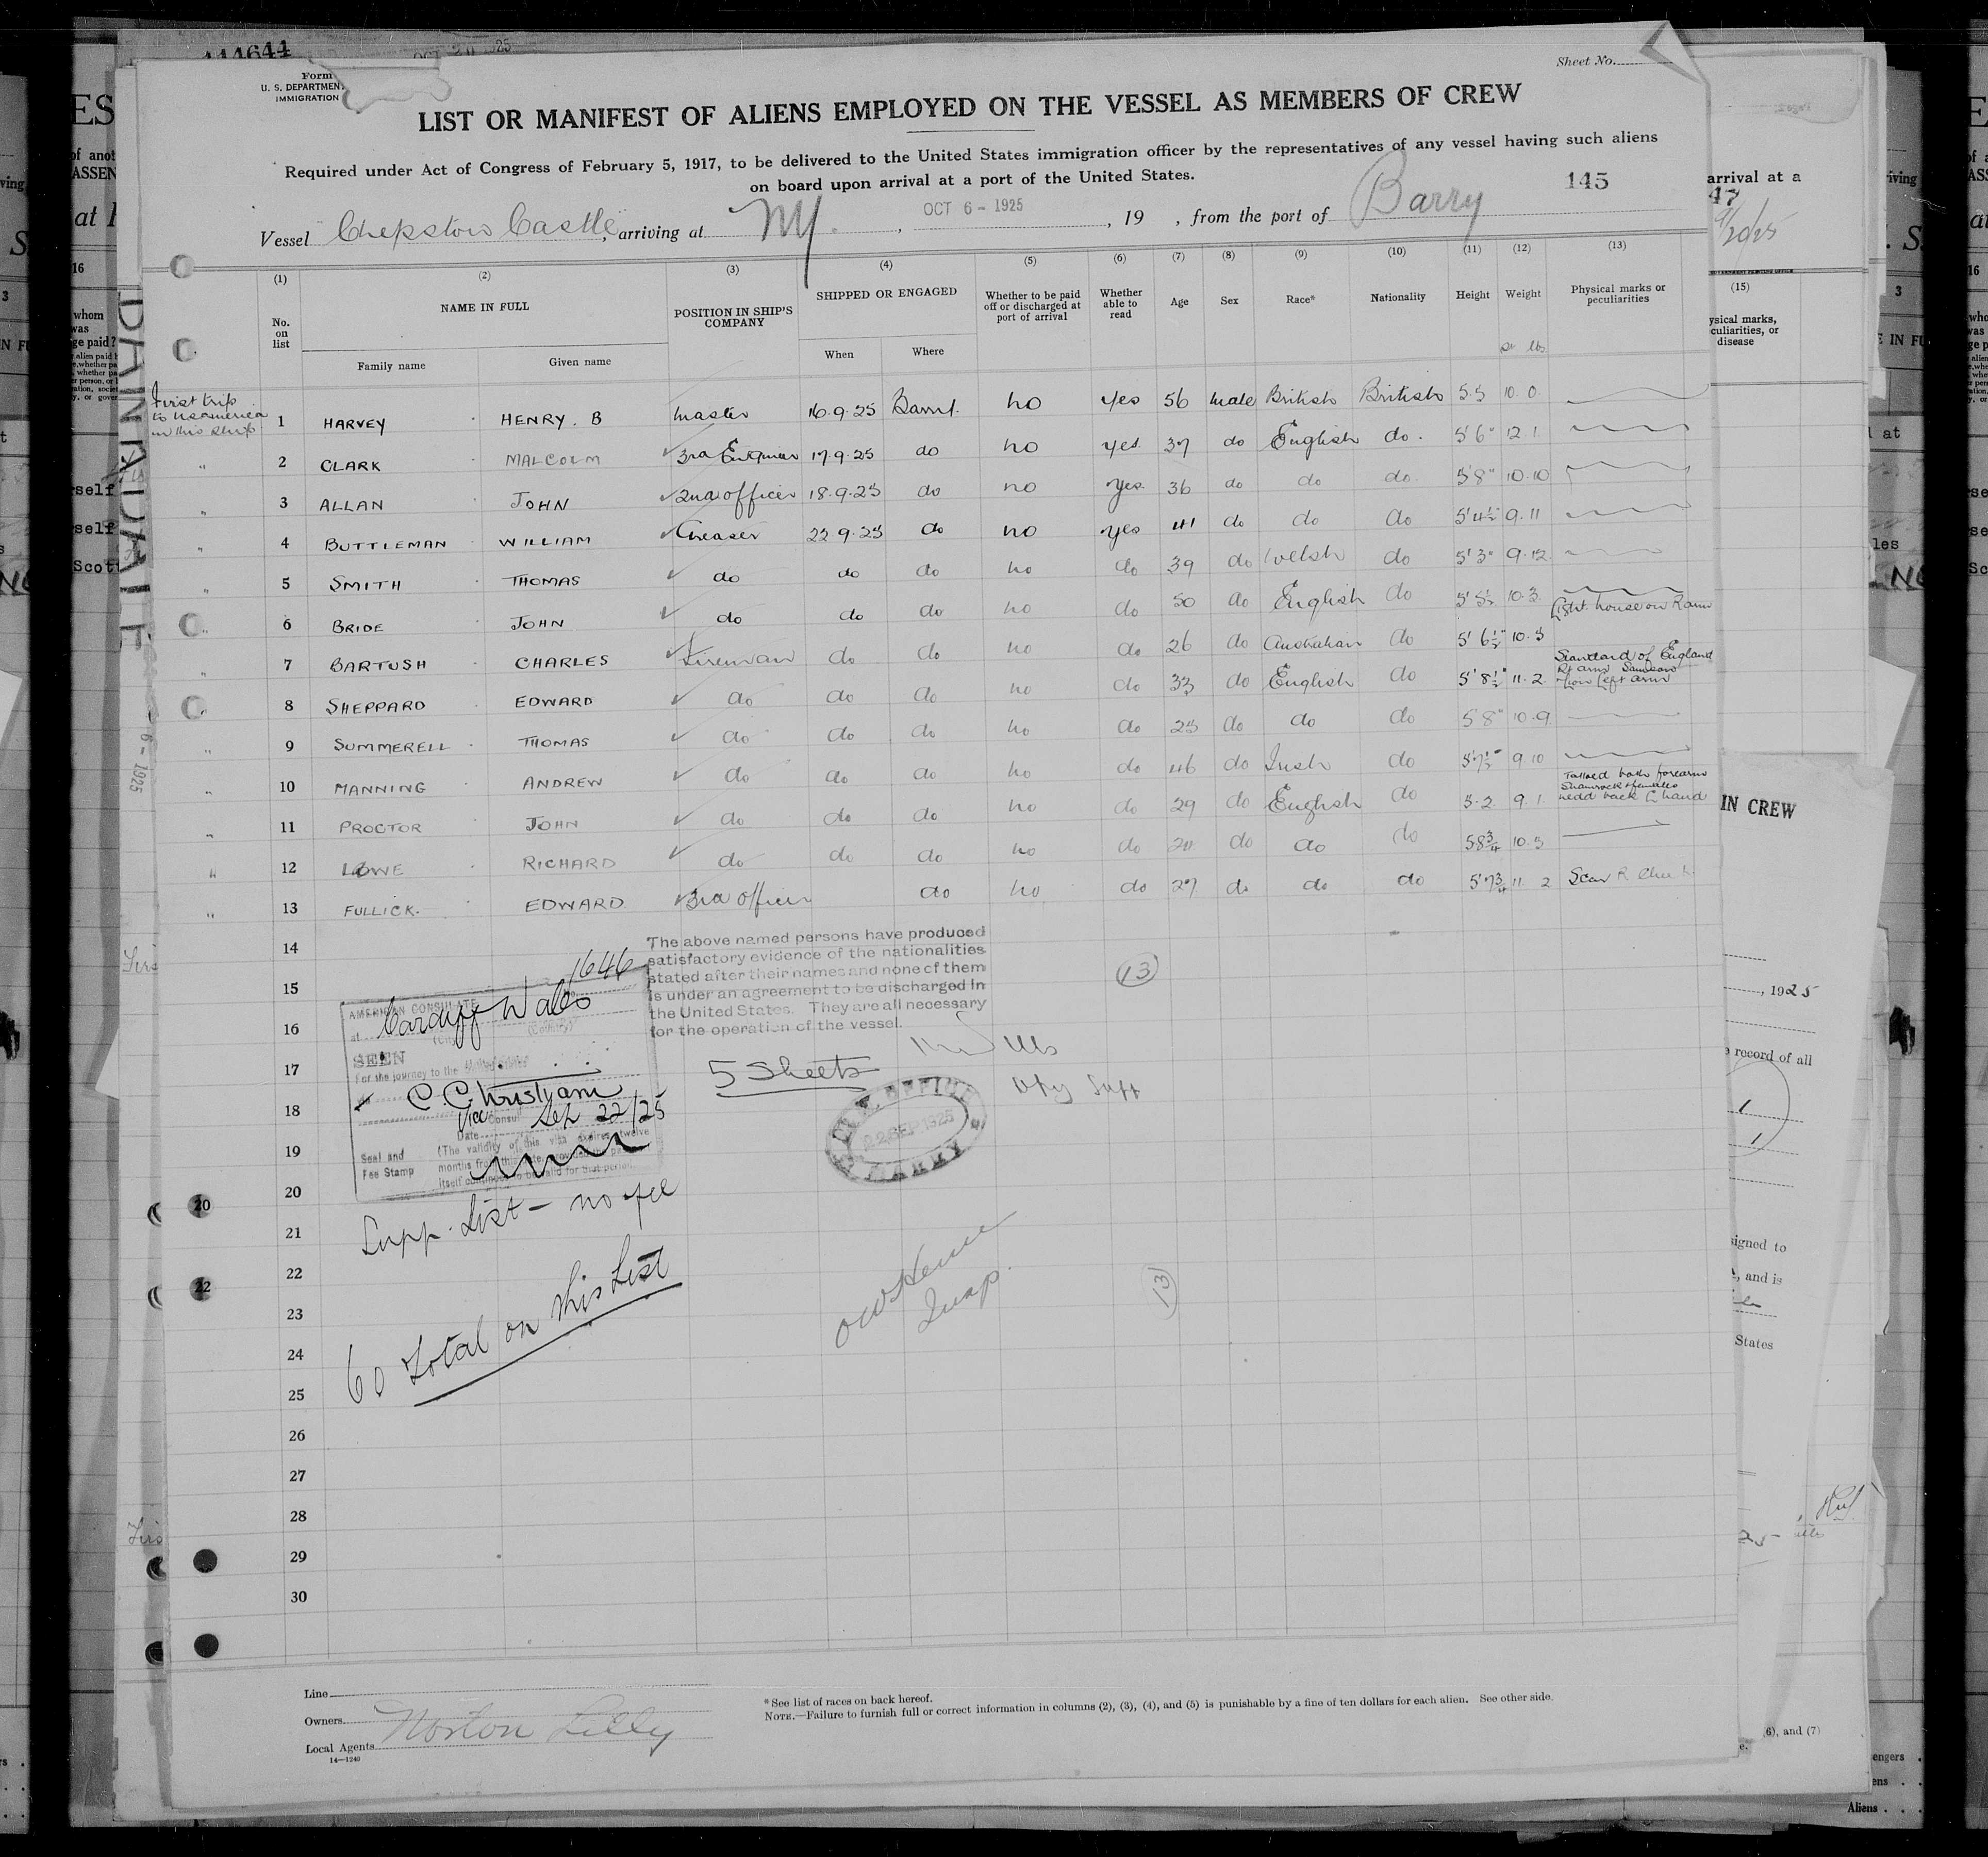 114644 OCT 20 1925
Form
U. S. DEPARTMENT
IMMIGRATION
Sheet No.
LIST OR MANIFEST OF ALIENS EMPLOYED ON THE VESSEL AS MEMBERS OF CREW
Required under Act of Congress of February 5, 1917, to be delivered to the United States immigration officer by the representatives of any vessel having such aliens
on board upon arrival at a port of the United States.
145
Vessel Chepstow Castle, arriving at NY. OCT 6 - 1925, 19 , from the port of Barry
(1) (2) (3) (4) (5) (6) (7) (8) (9) (10) (11) (12) (13)
No. on list NAME IN FULL POSITION IN SHIP'S COMPANY SHIPPED OR ENGAGED Whether to be paid off or discharged at port of arrival Whether able to read Age Sex Race* Nationality Height Weight Physical marks or peculiarities
Family name Given name When Where lbs
First trip
to USAmerica
in this ship
1 HARVEY HENRY. B Master 16.9.25 Barry. no yes 56 male British British 5.5 10.0.
" 2 CLARK MALCOLM 3rd Engineer 17.9.25 do no yes. 37 do English do. 5'6" 12.1.
" 3 ALLAN JOHN 2nd officer 18.9.25 do no yes. 36 do do do. 5'8" 10.10
" 4 BUTTLEMAN WILLIAM Greaser 22.9.25 do no yes 41 do do do 5'4½" 9.11
" 5 SMITH THOMAS do do do no do 39 do Welsh do 5'3" 9.12
" 6 BRIDE JOHN do do do no do 50 do English do 5'5½ 10.3.
Light house on R arm
" 7 BARTUSH CHARLES Fireman do do no do 26 do Australian do 5'6½" 10.5
" 8 SHEPPARD EDWARD do do do no do 33 do English do 5'8½" 11.2 Standard of England
Rt arm Samson
& Lion Left arm
" 9 SUMMERELL THOMAS do do do no do 25 do do do 5'8" 10.9
" 10 MANNING ANDREW do do do no do 46 do Irish do 5'7½" 9.10
" 11 PROCTOR JOHN do do do no do 29 do English do 5.2. 9.1. Tattoed both forearms
Shamrock & females
head back L hand
" 12 LOWE RICHARD do do do no do 20 do do do 5 8¾ 10.5
" 13 FULLICK. EDWARD. 3rd officer do no do 27 do do do 5'7¾ 11 2 Scar R Cheek.
14
15
16
17
18
19
20
21
22
23
24
25
26
27
28
29
30
The above named persons have produced
satisfactory evidence of the nationalities
stated after their names and none of them
is under an agreement to be discharged in
the United States. They are all necessary
for the operation of the vessel.
13
1646
AMERICAN CONSULATE
at Cardiff Wales
(City) (Country)
SEEN
For the journey to the United States
C. Christiani
Vice Consul
Date Sep 22/25
Seal and
Fee Stamp
(The validity of this visa expires twelve
months from this date, provided the passport
itself continues to be valid for that period.
5 Sheets
Dpy Supt
22 SEP 1925
BARRY
Supp. List - no fee
60 total on this List
Insp.
13
20
22
Line
Owners
Local Agents Norton Lilly
14—1240
*See list of races on back hereof.
NOTE.—Failure to furnish full or correct information in columns (2), (3), (4), and (5) is punishable by a fine of ten dollars for each alien. See other side.
DAINADALE
6 - 1925
arrival at a
47
(15)
ysical marks,
culiarities, or
disease
IN CREW
, 1925
record of all
igned to
, and is
States
6), and (7)
Aliens